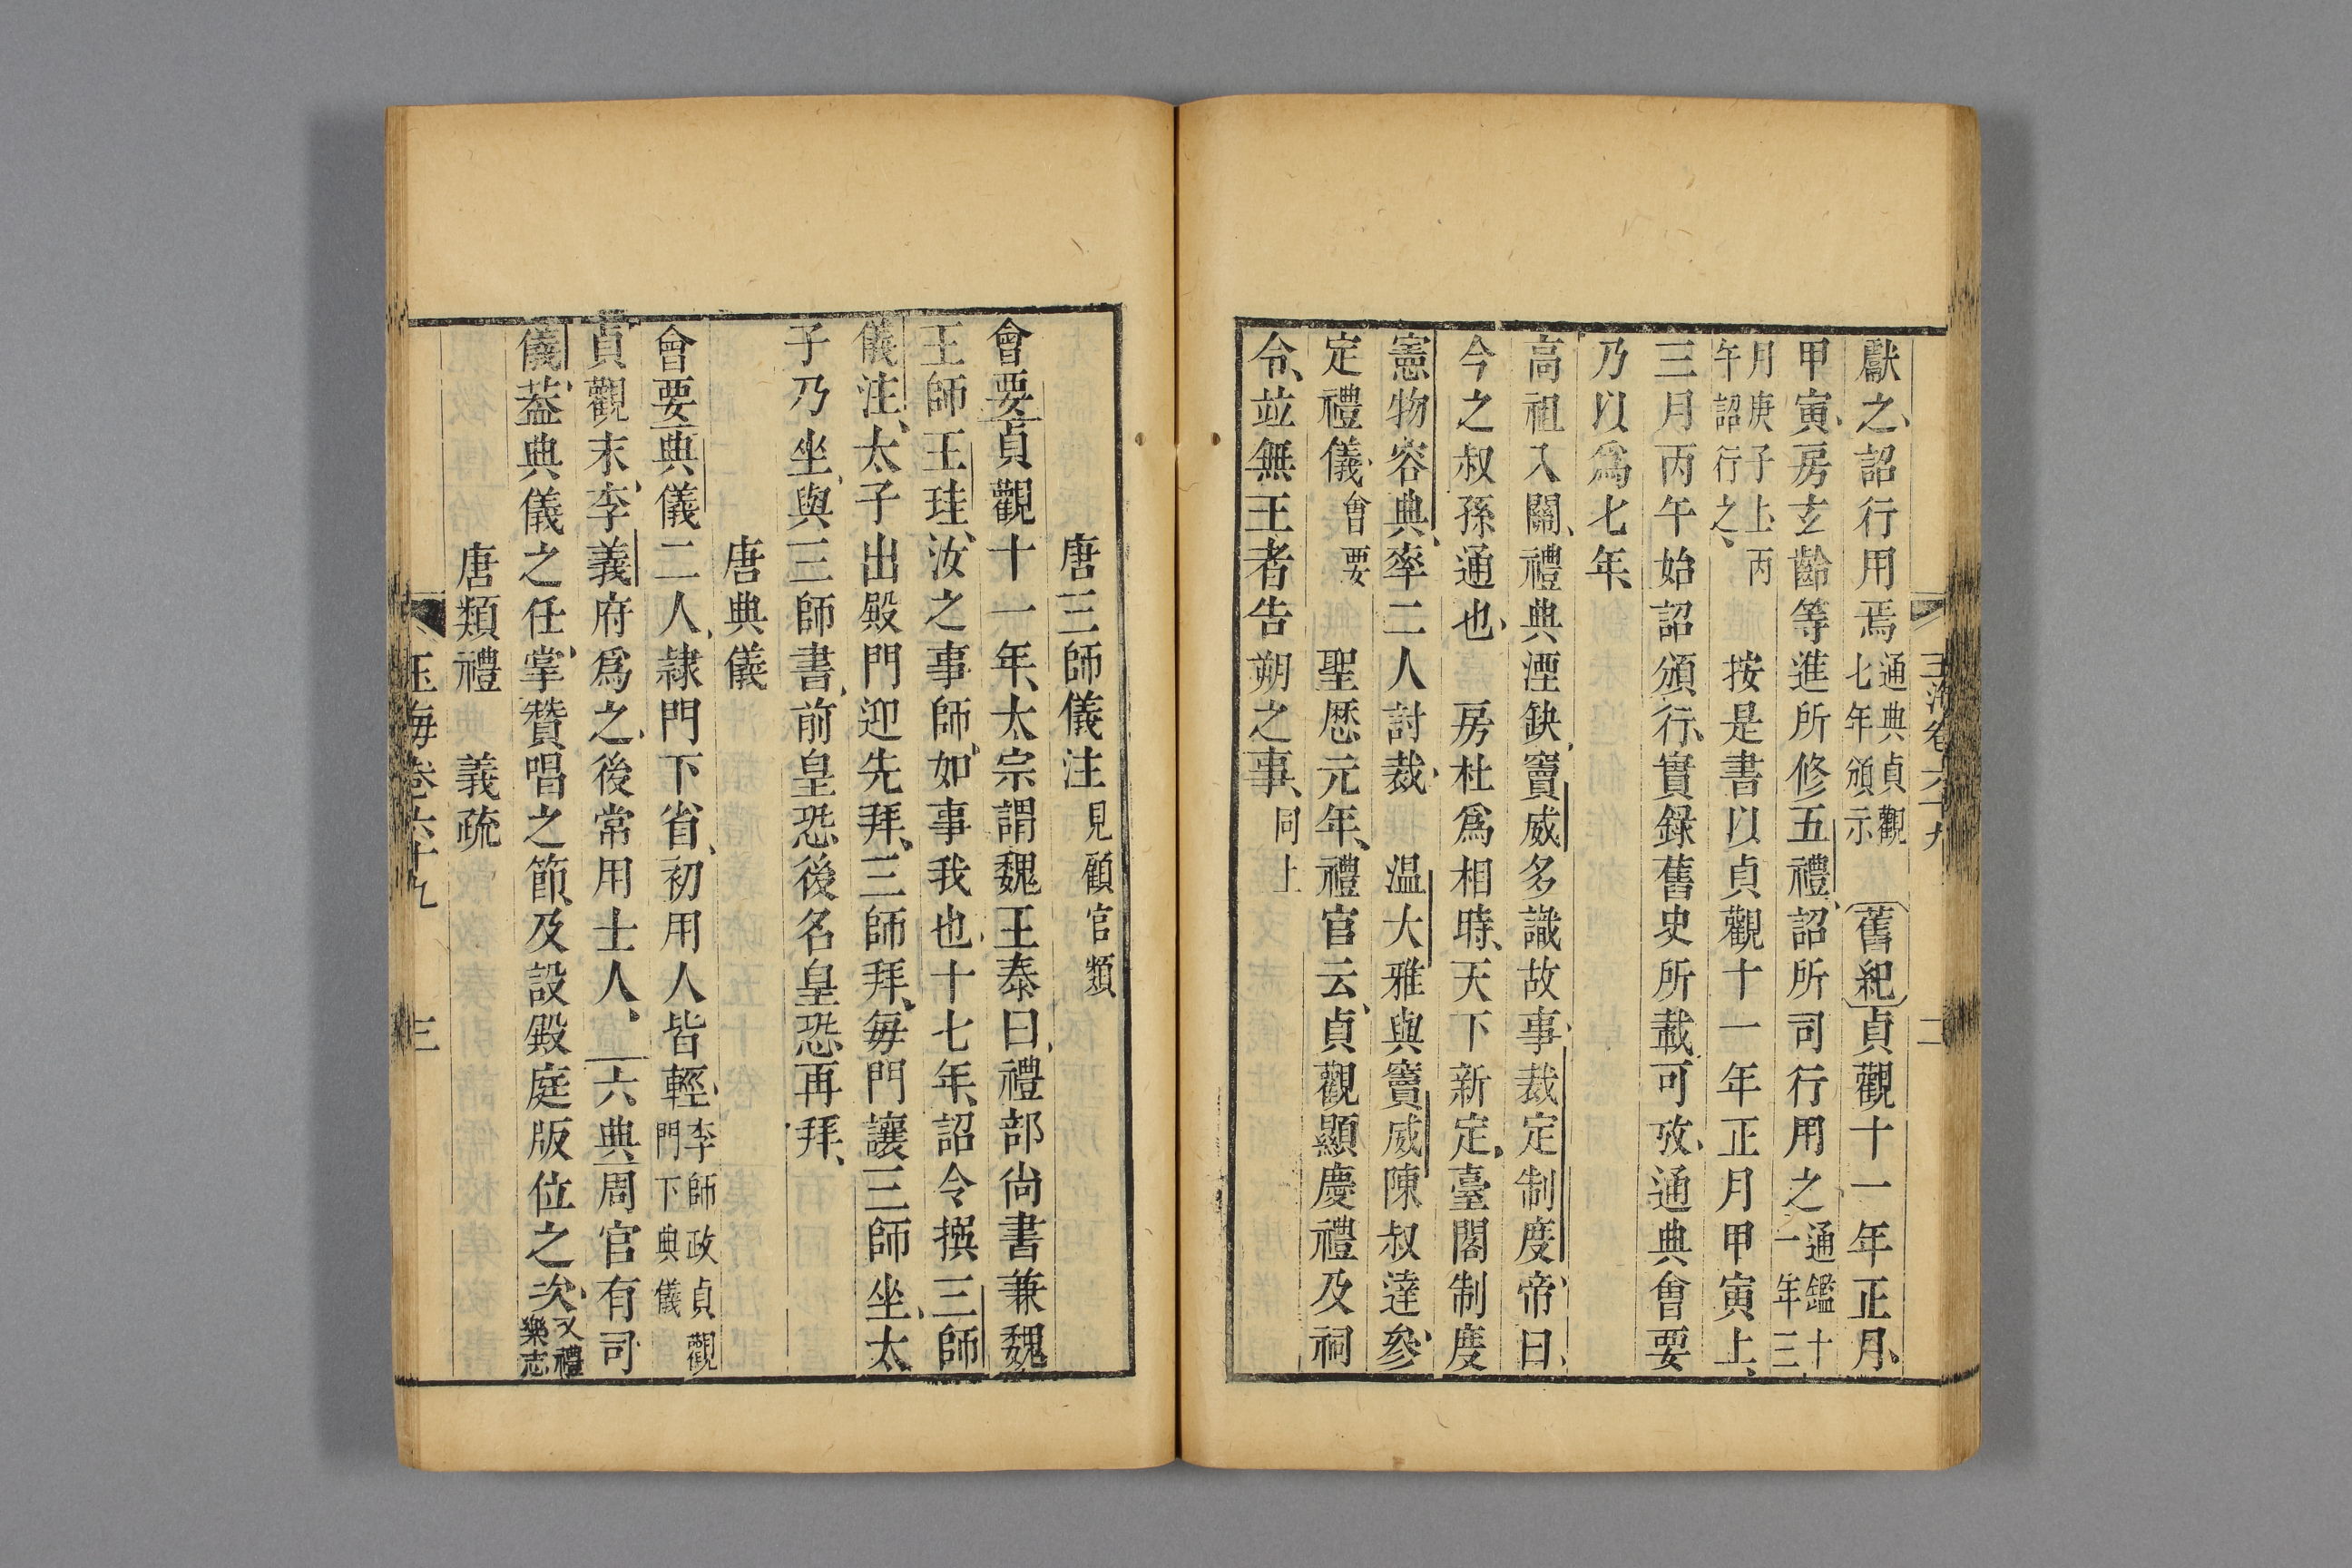 玉海卷六十九 二
獻之詔行用焉通典貞觀七年頒示 舊紀貞觀十一年正月
甲寅房玄齡等進所修五禮詔所司行用之通鑑十一年三
月庚子上丙午詔行之 按是書以貞觀十一年正月甲寅上
三月丙午始詔頒行實錄舊史所載可攷通典會要
乃以爲七年
高祖入關禮典湮缺竇威多識故事裁定制度帝曰
今之叔孫通也 房杜爲相時天下新定臺閣制度
憲物容典率二人討裁 温大雅與竇威陳叔達參
定禮儀會要 聖厯元年禮官云貞觀顯慶禮及祠
令竝無王者告朔之事同上
唐三師儀注見顧官類
會要貞觀十一年太宗謂魏王泰曰禮部尚書兼魏
王師王珪汝之事師如事我也十七年詔令撰三師
儀注太子出殿門迎先拜三師拜每門讓三師坐太
子乃坐與三師書前皇恐後名皇恐再拜
唐典儀
會要典儀二人隷門下省初用人皆輕李師政貞觀門下典儀
貞觀末李義府爲之後常用士人 六典周官有司
儀葢典儀之任掌贊唱之節及設殿庭版位之次又禮樂志
唐類禮 義疏
玉海卷六十九 三